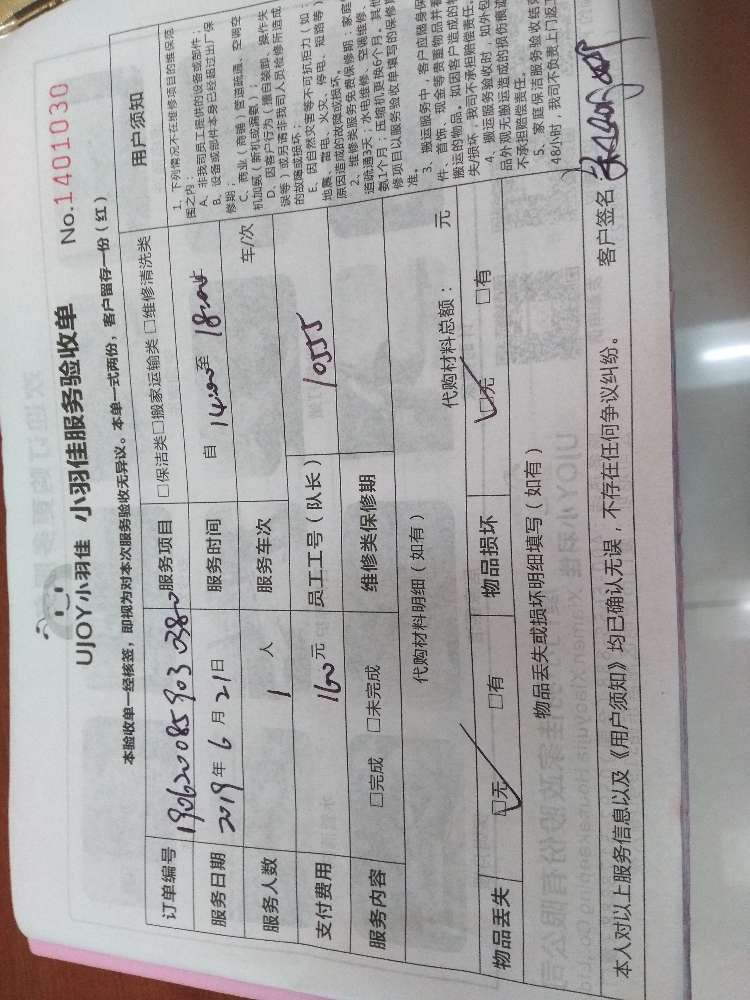 UJOY小羽佳 小羽佳服务验收单
No.1401030
本验收单一经核签，即视为对本次服务验收无异议。本单一式两份，客户留存一份（红）
订单编号 190620085903 0380 服务项目 □保洁类□搬家运输类 □维修清洗类
服务日期 2019年6月21日 服务时间 自 14:00 至 18:00
服务人数 1 人 服务车次 车/次
支付费用 160元 员工工号（队长） 10555
服务内容 □完成 □未完成 维修类保修期
代购材料明细（如有） 代购材料总额： 元
物品丢失 □无 □有 物品损坏 □无 □有
物品丢失或损坏明细填写（如有）
本人对以上服务信息以及《用户须知》均已确认无误，不存在任何争议纠纷。 客户签名
用户须知
1、下列情况不在维修项目的维保范
围之内：
A、非我司员工提供的设备或部件；
B、设备或部件本身已经超过出厂保
修期；
C、商业（商铺）管道疏通、空调空
机加氨（新机或漏氨）；
D、因客户行为（擅自装卸、操作失
误等）或另请非我司人员检修所造成
的故障或损坏；
E、因自然灾害等不可抗力（如：
地震、雷电、火灾、停电、短路等）
原因造成的故障或损坏。
2、维修类服务免费保修期：家庭
道疏通3天；水电维修、空调维修、
氨1个月；压缩机更换6个月。其他
修项目以服务验收单填写的保修期
准。
3、搬运服务中，客户应随身保
件、首饰、现金等贵重物品并看
搬运的物品。如因客户造成的物
失/损坏，我司不承担赔偿责任。
4、搬运服务验收时，如外包
品外观无搬运造成的损伤痕迹
不承担赔偿责任。
5、家庭保洁服务验收结束
48小时，我司不负责上门返